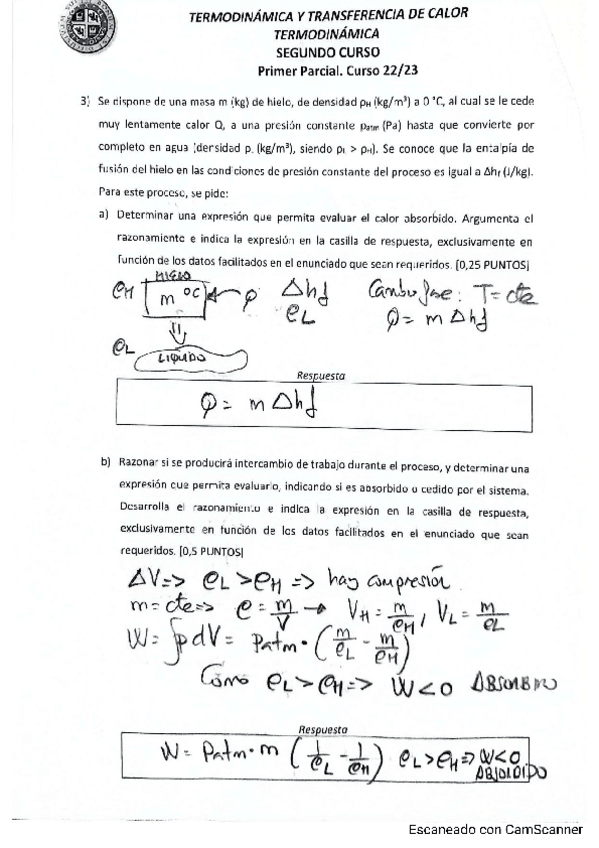 TERMODINÁMICA Y TRANSFERENCIA DE CALOR
TERMODINÁMICA
SEGUNDO CURSO
Primer Parcial. Curso 22/23
3) Se dispone de una masa m (kg) de hielo, de densidad ρH (kg/m³) a 0 °C, al cual se le cede
muy lentamente calor Q, a una presión constante patm (Pa) hasta que convierte por
completo en agua (densidad ρL (kg/m³), siendo ρL > ρH). Se conoce que la entalpía de
fusión del hielo en las condiciones de presión constante del proceso es igual a Δhf (J/kg).
Para este proceso, se pide:
a) Determinar una expresión que permita evaluar el calor absorbido. Argumenta el
razonamiento e indica la expresión en la casilla de respuesta, exclusivamente en
función de los datos facilitados en el enunciado que sean requeridos. [0,25 PUNTOS]
HIELO
ρH m 0°C Q Δhf Cambio fase: T = cte
ρL Q = m Δhf
ρL LIQUIDO
Respuesta
Q = m Δhf
b) Razonar si se producirá intercambio de trabajo durante el proceso, y determinar una
expresión que permita evaluarlo, indicando si es absorbido o cedido por el sistema.
Desarrolla el razonamiento e indica la expresión en la casilla de respuesta,
exclusivamente en función de los datos facilitados en el enunciado que sean
requeridos. [0,5 PUNTOS]
ΔV => ρL > ρH => hay compresión
m = cte => ρ = m/V → VH = m/ρH, VL = m/ρL
W = ∫pdV = Patm · (m/ρL - m/ρH)
Como ρL > ρH => W < 0 ABSORBIDO
Respuesta
W = Patm · m (1/ρL - 1/ρH) ρL > ρH => W < 0
Escaneado con CamScanner